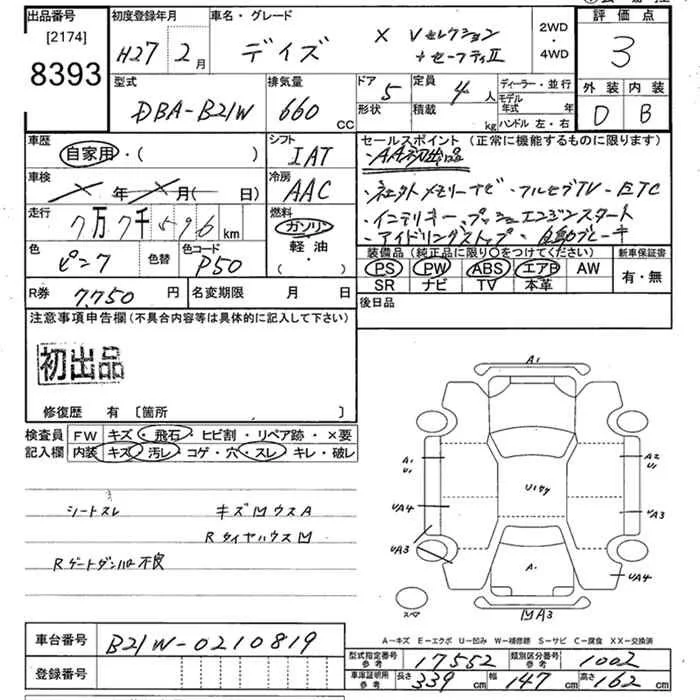 出品番号
[2174]
8393
初度登録年月
H27 2月
車名・グレード
デイズ X Vセレクション
+セーフティII
2WD
・
4WD
評価点
3
外装 内装
D B
型式
DBA-B21W
排気量
660 CC
ドア 5
形状
定員 4人
積載 kg
ディーラー・並行
モデル年式 年
ハンドル 左・右
車歴
自家用・( )
シフト
IAT
車検
年 月( 日)
冷房
AAC
走行
7万7千596km
燃料
ガソリン
軽油
・( )
色
ピンク
色替
色コード
P50
R券 7750円
名変期限 月 日
セールスポイント(正常に機能するものに限ります)
・AA初出品
・社外メモリーナビ・フルセグTV・ETC
・インテリキー・プッシュエンジンスタート
・アイドリングストップ・自動ブレーキ
装備品(純正品に限り○をつけてください)
PS PW ABS エアB AW
SR ナビ TV 本革
新車保証書
有・無
後日品
注意事項申告欄(不具合内容等は具体的に記入して下さい)
初出品
修復歴 有〔箇所 〕
検査員 FW キズ・飛石・ヒビ割・リペア跡・×要
記入欄 内装 キズ・汚レ・コゲ・穴・スレ・キレ・破レ
シートスレ キズMウスA
RタイヤハウスM
Rゲートダンパー不良
A1
A1
U1
A2
U1
U1
UA4
UA3
UA3
UA4
A1
スペア
MA3
A-キズ E-エクボ U-凹み W-補修跡 S-サビ C-腐食 XX-交換済
車台番号 B21W-0210819
登録番号
型式指定番号参考 17552
類別区分番号参考 1002
車庫証明用参考 長さ 339cm 幅 147cm 高さ 162cm